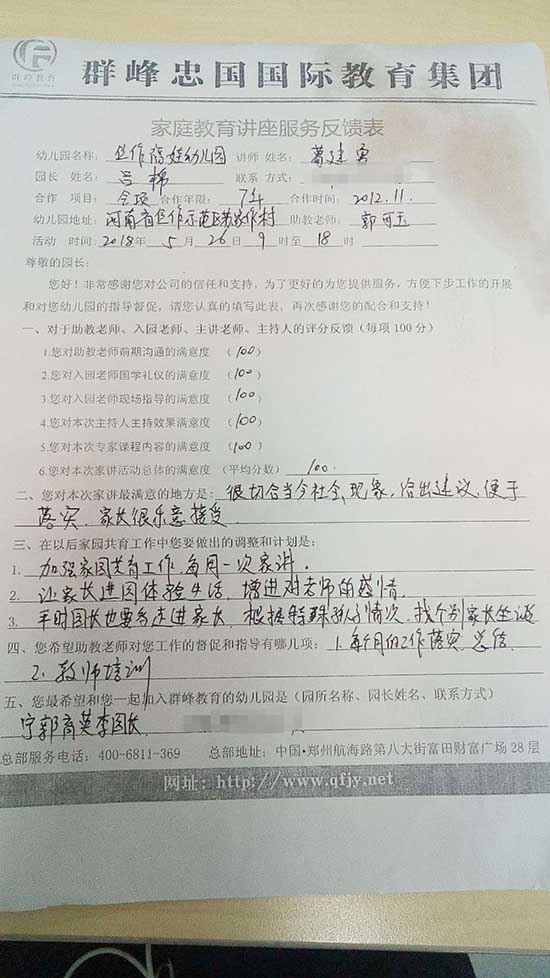 群峰教育
群峰忠国国际教育集团
家庭教育讲座服务反馈表
幼儿园名称: 焦作福娃幼儿园 讲师 姓名: 葛建勇
园长 姓名: 吕棉 联系 方式:
合作 项目: 全项 合作年限: 7年 合作时间: 2012.11.
幼儿园地址: 河南省焦作示范区苏家作村 助教老师: 郭可玉
活动 时间: 2018年 5 月 26 日 9 时至 18 时
尊敬的园长:
您好!非常感谢您对公司的信任和支持,为了更好的为您提供服务,方便下步工作的开展
和对您幼儿园的指导督促,请您认真的填写此表,再次感谢您的配合和支持!
一、对于助教老师、入园老师、主讲老师、主持人的评分反馈(每项100分)
1.您对助教老师前期沟通的满意度 (100)
2.您对入园老师国学礼仪的满意度 (100)
3.您对入园老师现场指导的满意度 (100)
4.您对本次主持人主持效果满意度 (100)
5.您对本次专家课程内容的满意度 (100)
6.您对本次家讲活动总体的满意度 (平均分数) 100.
二、您对本次家讲最满意的地方是: 很切合当今社会现象,给出建议,便于
落实,家长很乐意接受.
三、在以后家园共育工作中您要做出的调整和计划是:
1. 加强家园共育工作,每周一次家讲.
2. 让家长进园体验生活,增进对老师的感情.
3. 平时园长也要多走进家长,根据特殊孩子情况,找个别家长坐谈
四、您希望助教老师对您工作的督促和指导有哪几项: 1.每个月的工作落实、总结
2.教师培训
五、您最希望和您一起加入群峰教育的幼儿园是(园所名称、园长姓名、联系方式)
宁郭育英李园长
总部服务电话: 400-6811-369 总部地址: 中国·郑州航海路第八大街富田财富广场28层
网址: http://www.qfjy.net